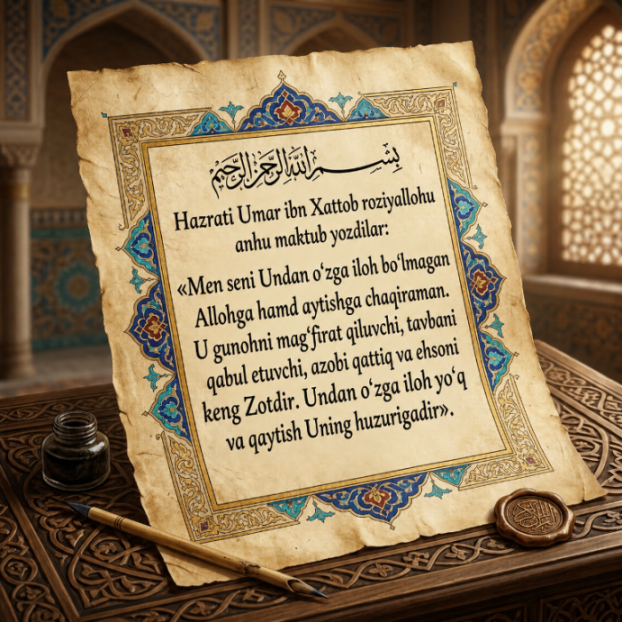 بِسْمِ اللهِ الرَّحْمٰنِ الرَّحِيْمِ
Hazrati Umar ibn Xattob roziyallohu
anhu maktub yozdilar:
«Men seni Undan o‘zga iloh bo‘lmagan
Allohga hamd aytishga chaqiraman.
U gunohni mag‘firat qiluvchi, tavbani
qabul etuvchi, azobi qattiq va ehsoni
keng Zotdir. Undan o‘zga iloh yo‘q
va qaytish Uning huzurigadir».